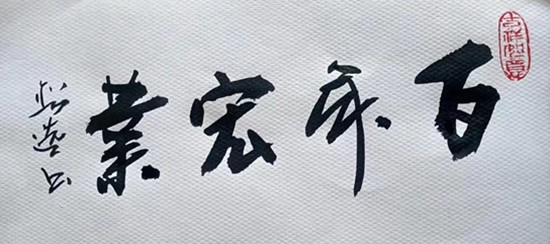 百年宏業